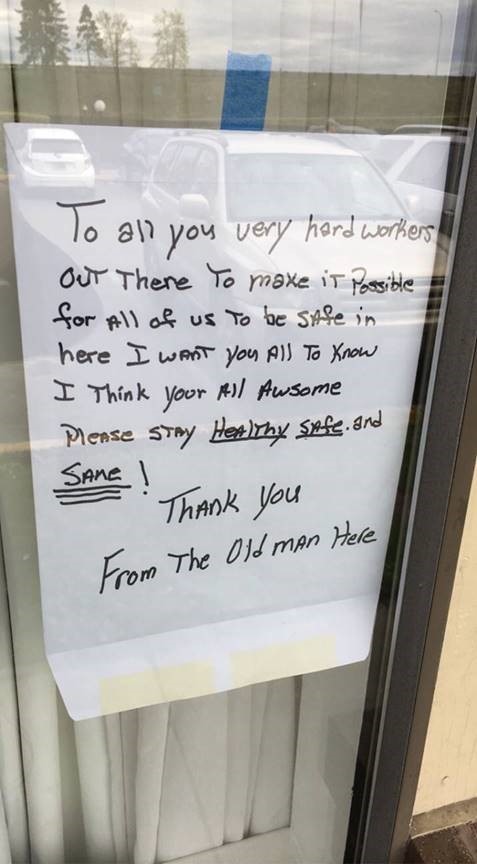 To all you very hard workers
OUT There To make iT Possible
for All of us To be SAfe in
here I WANT you All To Know
I Think your All Awsome
Please STAY HeAlThy SAfe. and
SANE!
THANK you
From The Old mAn Here